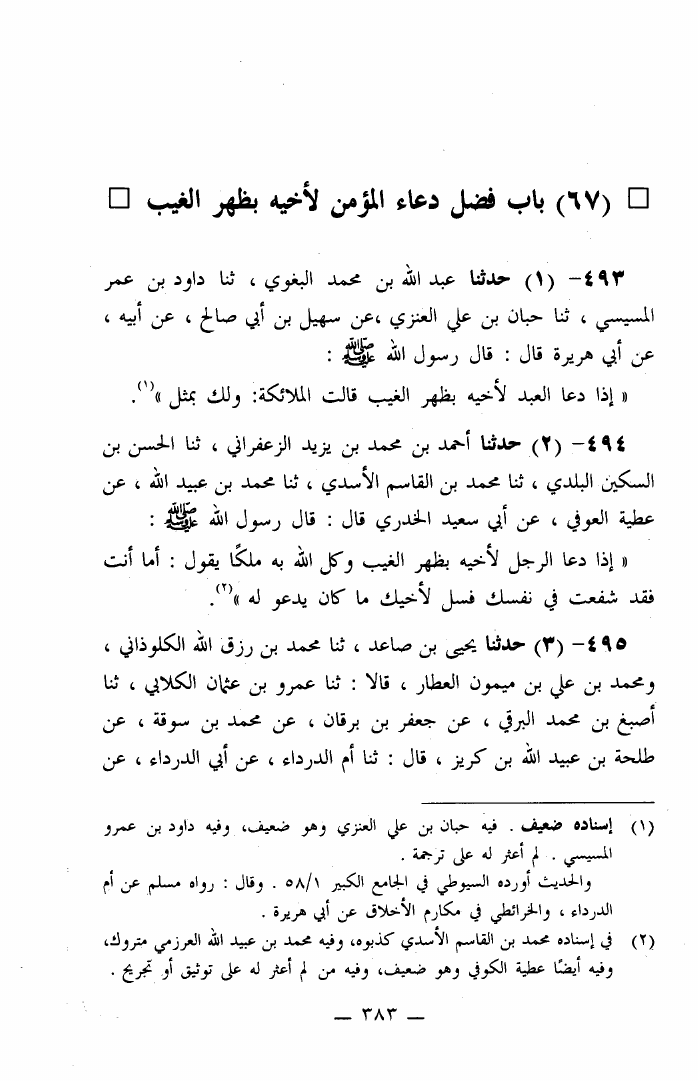 □ (٦٧) باب فضل دعاء المؤمن لأخيه بظهر الغيب □
٤٩٣- (١) حدثنا عبد الله بن محمد البغوي ، ثنا داود بن عمر
المسيسي ، ثنا حبان بن علي العنزي ،عن سهيل بن أبي صالح ، عن أبيه ،
عن أبي هريرة قال : قال رسول الله ﷺ :
« إذا دعا العبد لأخيه بظهر الغيب قالت الملائكة: ولك بمثل »(١).
٤٩٤- (٢) حدثنا أحمد بن محمد بن يزيد الزعفراني ، ثنا الحسن بن
السكين البلدي ، ثنا محمد بن القاسم الأسدي ، ثنا محمد بن عبيد الله ، عن
عطية العوفي ، عن أبي سعيد الخدري قال : قال رسول الله ﷺ :
« إذا دعا الرجل لأخيه بظهر الغيب وكل الله به ملكًا يقول : أما أنت
فقد شفعت في نفسك فسل لأخيك ما كان يدعو له »(٢).
٤٩٥- (٣) حدثنا يحيى بن صاعد ، ثنا محمد بن رزق الله الكلوذاني ،
ومحمد بن علي بن ميمون العطار ، قالا : ثنا عمرو بن عثمان الكلابي ، ثنا
أصبغ بن محمد البرقي ، عن جعفر بن برقان ، عن محمد بن سوقة ، عن
طلحة بن عبيد الله بن كريز ، قال : ثنا أم الدرداء ، عن أبي الدرداء ، عن
(١) إسناده ضعيف . فيه حبان بن علي العنزي وهو ضعيف، وفيه داود بن عمرو
المسيسي . لم أعثر له على ترجمة .
والحديث أورده السيوطي في الجامع الكبير ٥٨/١ . وقال : رواه مسلم عن أم
الدرداء ، والخرائطي في مكارم الأخلاق عن أبي هريرة .
(٢) في إسناده محمد بن القاسم الأسدي كذبوه، وفيه محمد بن عبيد الله العرزمي متروك،
وفيه أيضًا عطية الكوفي وهو ضعيف، وفيه من لم أعثر له على توثيق أو تجريح .
— ٣٨٣ —